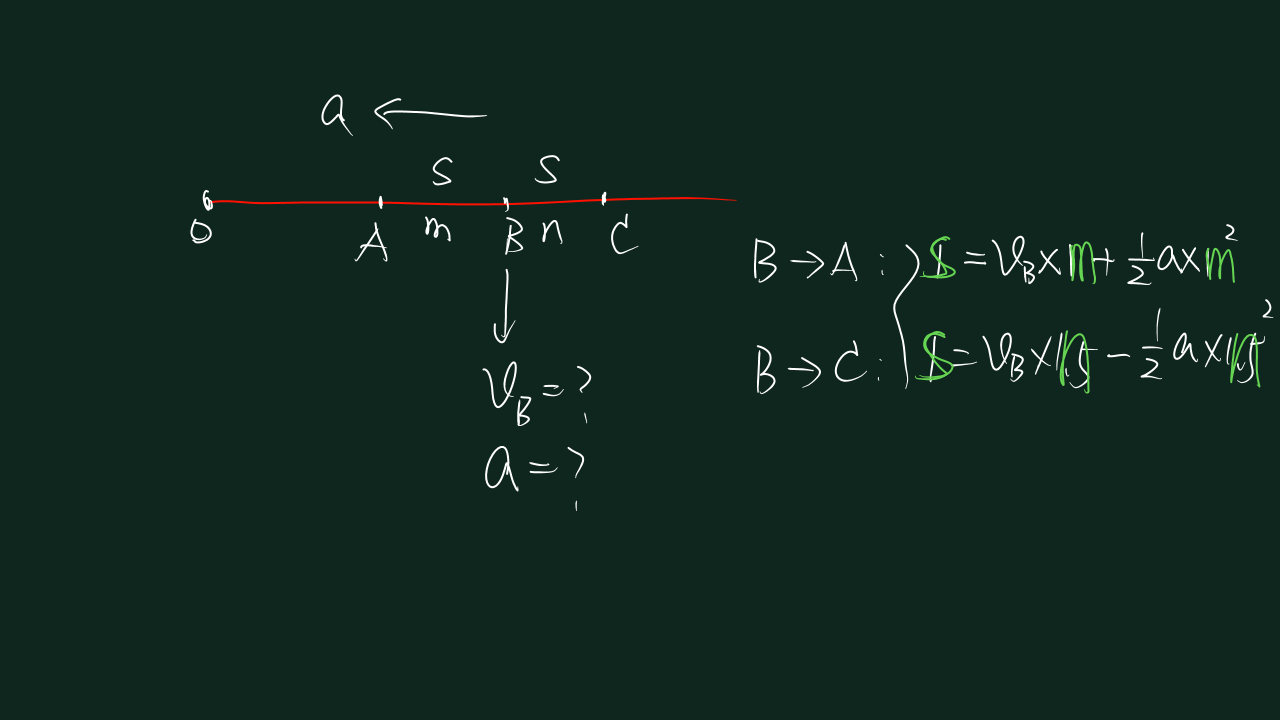 a ←
S S
O A m B n C
B → A : S = v_B × m + 1/2 a × m²
B → C : S = v_B × n - 1/2 a × n²
v_B = ?
a = ?